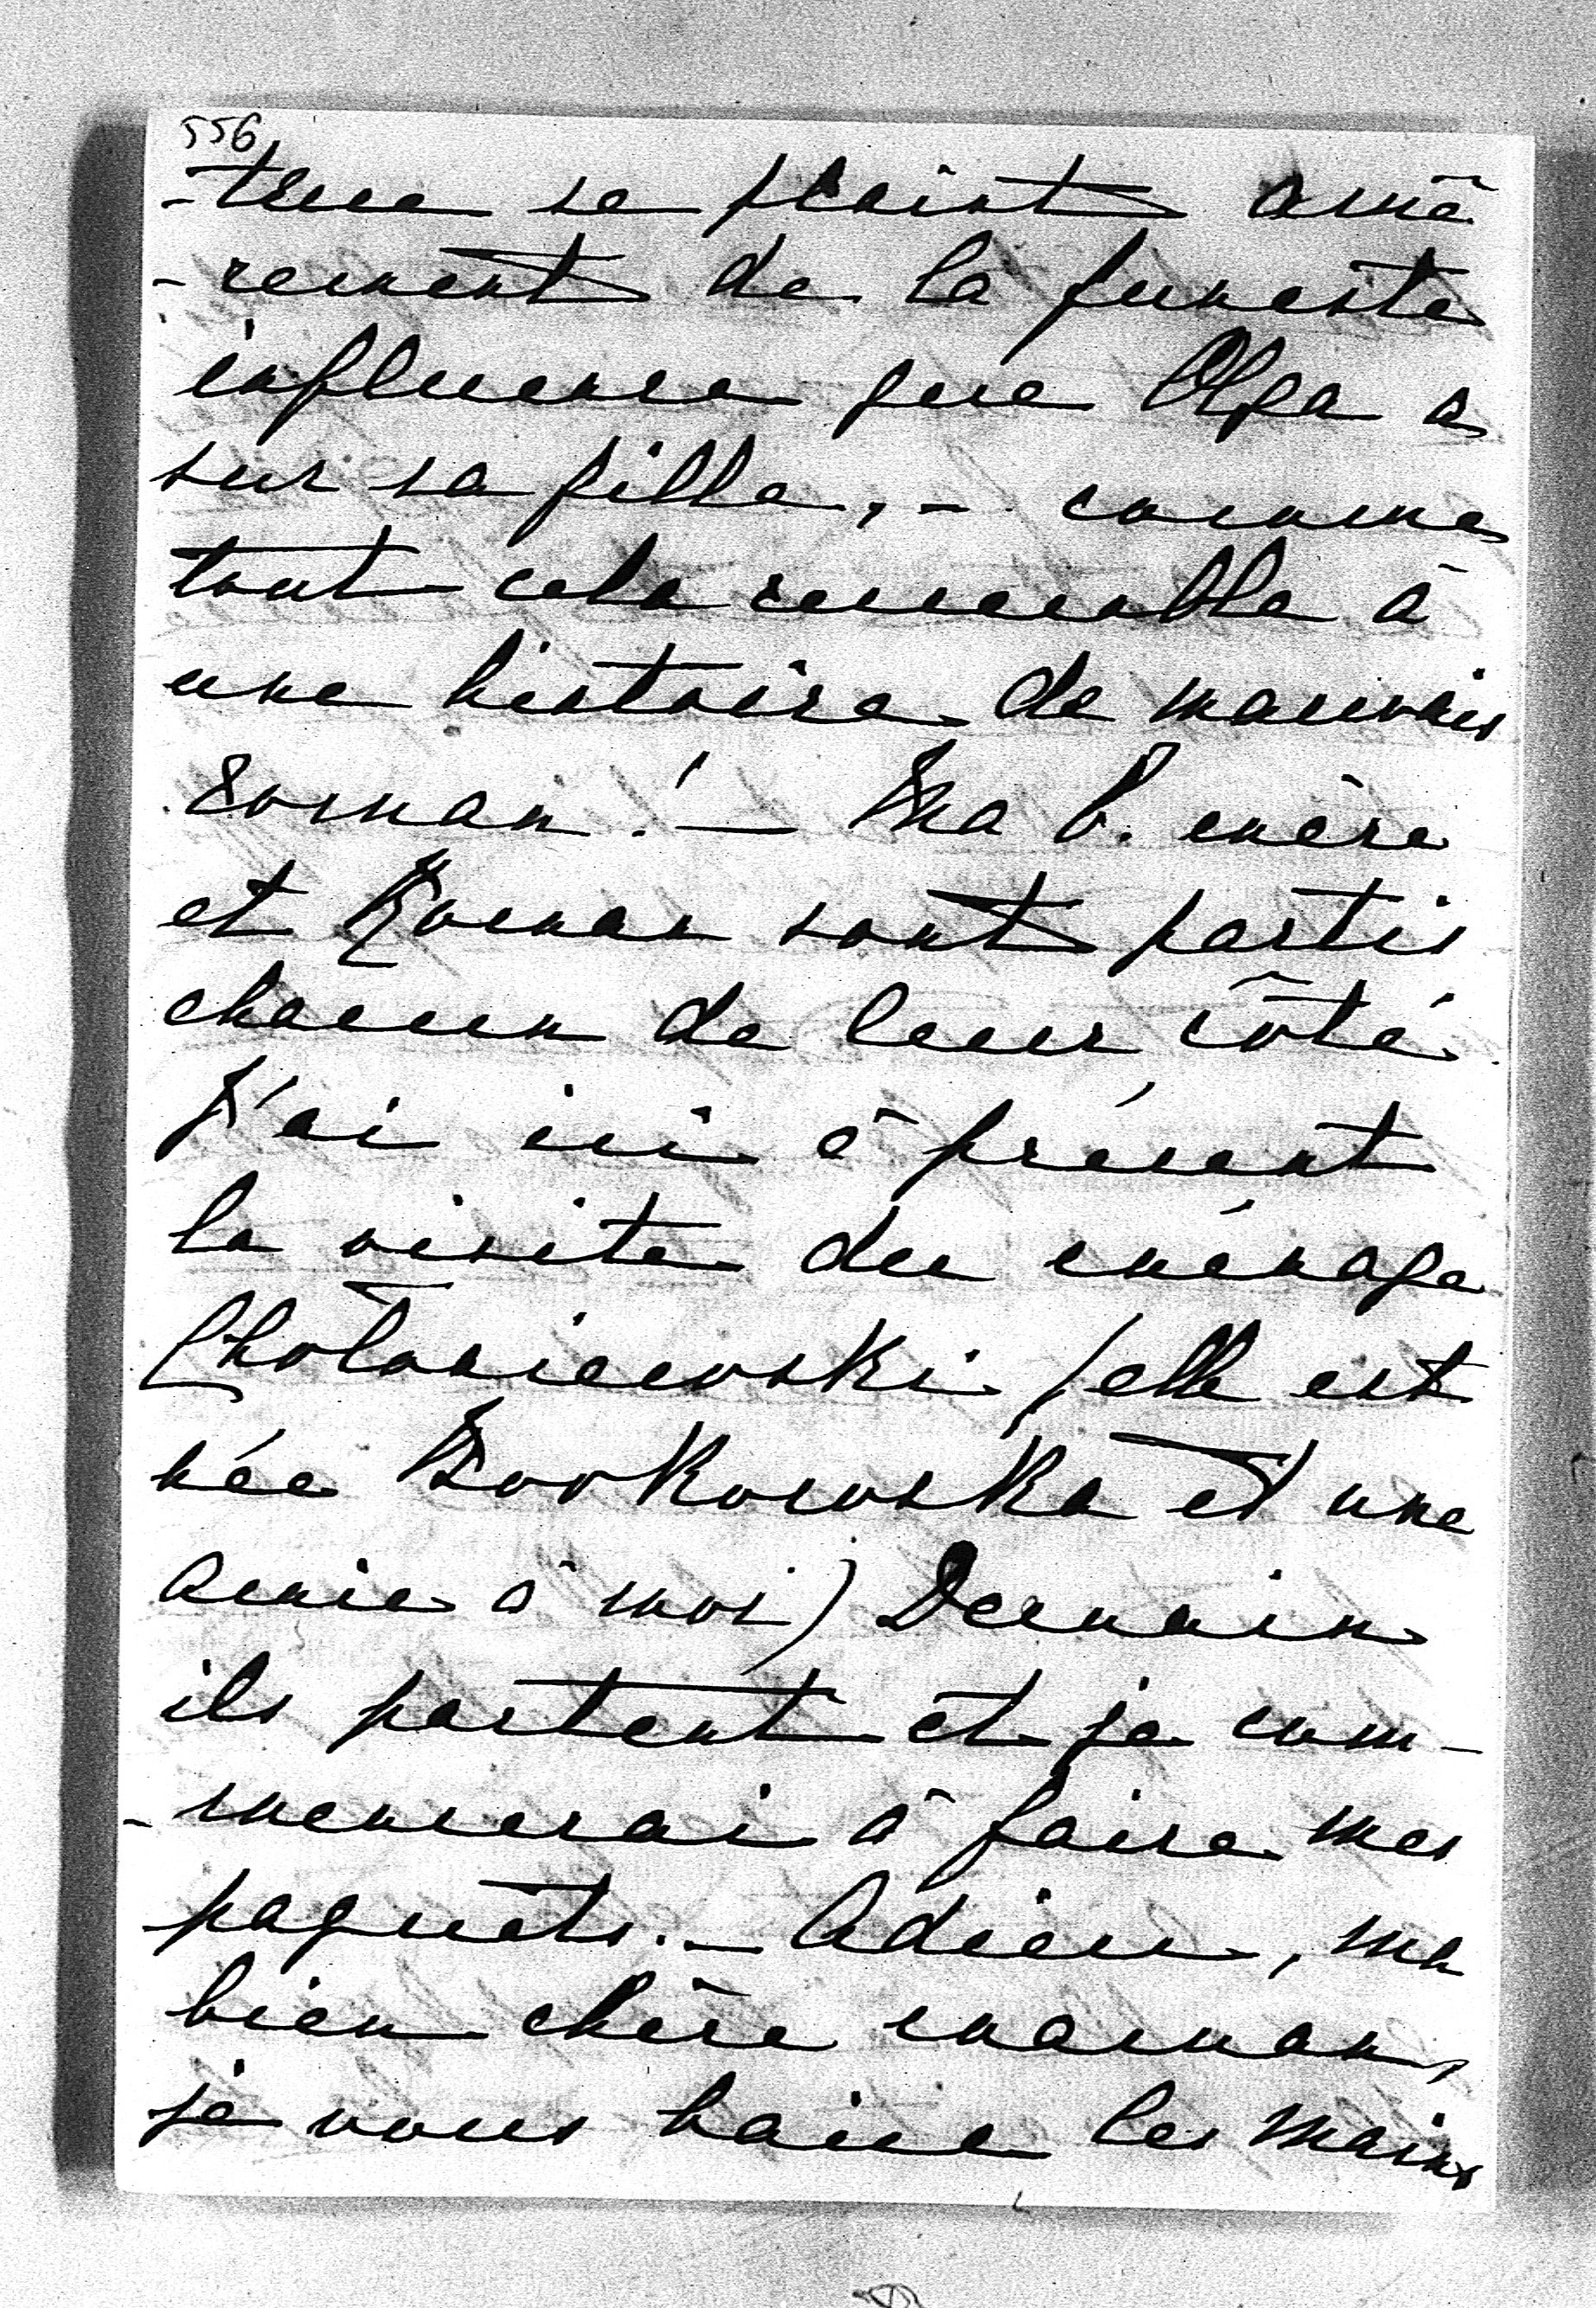 556
-trice se plaint amè
-rement de la funeste
influence que Olga a
sur sa fille, - comme
tout cela ressemble à
une histoire de mauvais
roman! — Ma b. mère
et Roman sont partis
chacun de leur côté
J'ai ici à présent
la visite du ménage
Choloniewski (elle est
née Borkowska et une
amie à moi) Demain
ils partent et je com-
-mencerai à faire mes
paquets. - Adieu, ma
bien chère maman,
je vous baise les mains